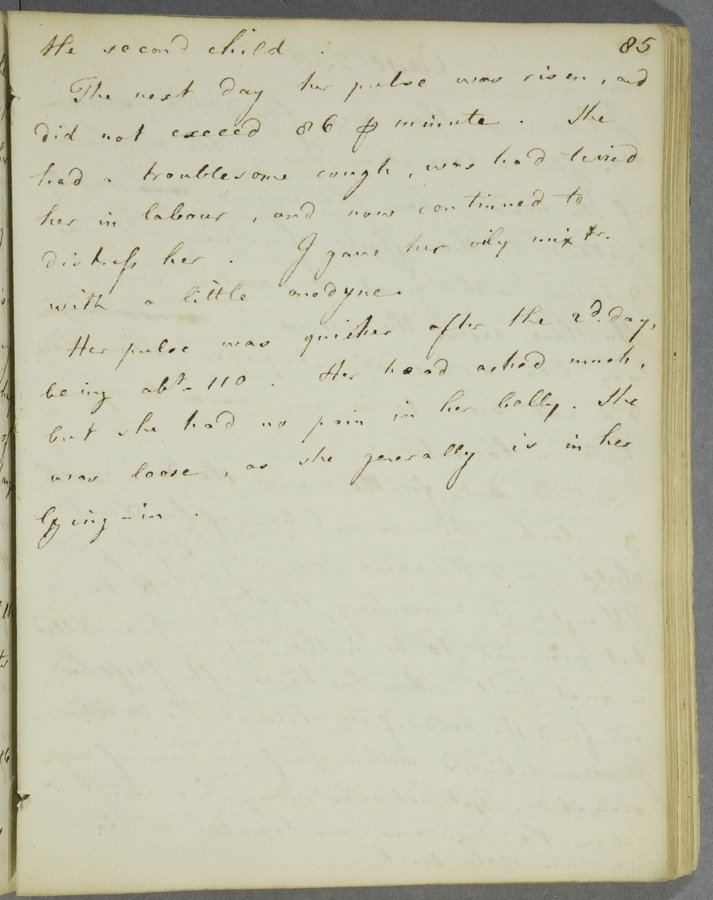 85
the second child .
The next day her pulse was risen, and
did not exceed 86 ⅌ minute . She
had a troublesome cough, was had teized
her in labour , and now continued to
distress her . I gave her oily mixtr.
with a little anodyne.
Her pulse was quicker after the 2d. day,
being abt. 110 . Her head ached much,
but she had no pain in her belly. She
was loose , as she generally is in her
lying-in .